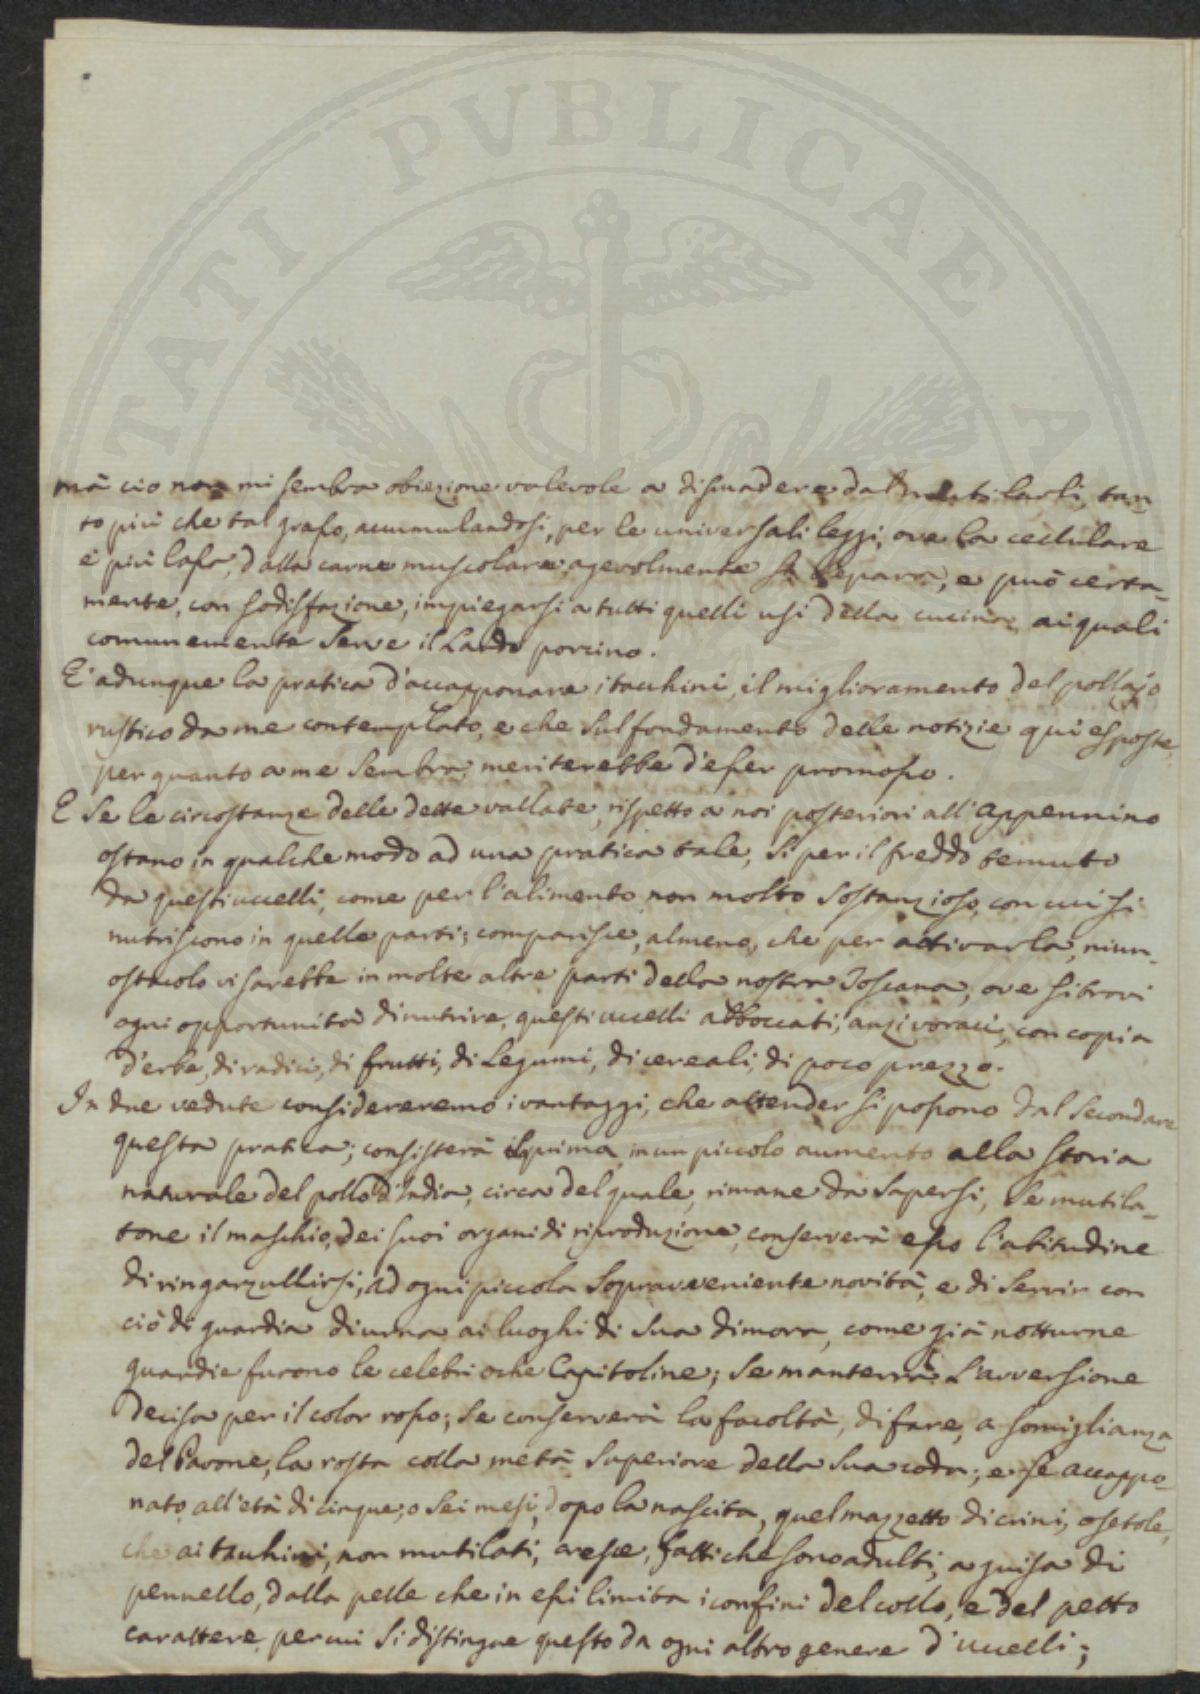 TATI PVBLICAE A
mà ciò non mi sembra obiezione valevole a disuadere dal mutilarli, tan-
to più che tal grasso, accumulandosi, per le universali leggi, ove la cellulare
è più lassa, dalla carne muscolare, agevolmente si separa, e può certa-
mente, con sodisfazione, impiegarsi a tutti quelli usi della cucina, ai quali
comunemente serve il Lardo porcino.
E' adunque la pratica d'accapponare i tacchini, il miglioramento del pollajo
rustico da me contemplato, e che sul fondamento delle notizie qui esposte,
per quanto a me sembra, meriterebbe d'esser promosso.
E se le circostanze delle dette vallate, rispetto a noi posteriori all'Appennino
ostano in qualche modo ad una pratica tale, sì per il freddo temuto
da questi uccelli, come per l'alimento non molto sostanzioso, con cui si
nutriscono in quelle parti; comparisce, almeno, che per attivarla, niun
ostacolo vi sarebbe in molte altre parti della nostra Toscana, ove si trovi
ogni opportunità di nutrire, questi uccelli abboccati, anzi voraci, con copia
d'erbe, di radici, di frutti, di Legumi, di cereali, di poco prezzo.
In due vedute considereremo i vantaggi, che attender si possono dal secondare
questa pratica; consisterà la prima, in un piccolo aumento alla storia
naturale del pollo d'India, circa del quale, rimane da sapersi, se mutila-
tone il maschio, dei suoi organi di riproduzione, conserverà esso l'abitudine
di ringarzullirsi, ad ogni piccola sopravveniente novità, e di servir con
ciò di guardia diurna ai luoghi di sua dimora, come già notturne
guardie furono le celebri oche Capitoline; se manterrà l'avversione
decisa per il color rosso; se conserverà la facoltà, di fare, a somiglianza
del Pavone, la rosta colla metà superiore della sua coda; e se accappo-
nato, all'età di cinque, o sei mesi, dopo la nascita, quel mazzetto di crini, o setole,
che ai tacchini, non mutilati, cresce, fatti che sono adulti, a guisa di
pennello, dalla pelle che in essi limita i confini del collo, e del petto
carattere, per cui si distingue questo da ogni altro genere d'uccelli;